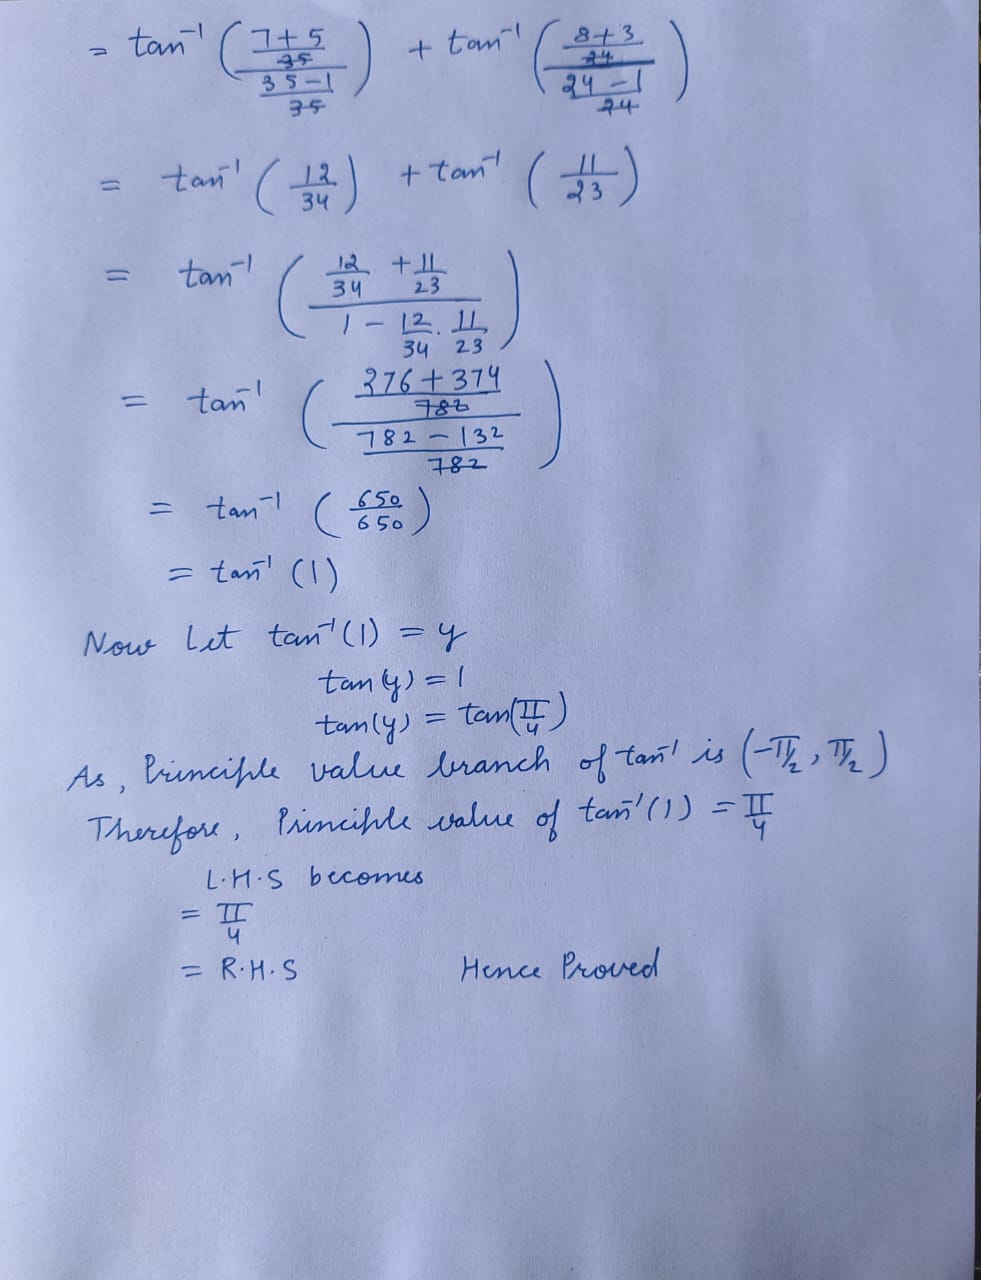 = tan⁻¹ ( (7+5)/35 / (35-1)/35 ) + tan⁻¹ ( (8+3)/24 / (24-1)/24 )
= tan⁻¹ ( 12/34 ) + tan⁻¹ ( 11/23 )
= tan⁻¹ ( (12/34 + 11/23) / (1 - 12/34 . 11/23) )
= tan⁻¹ ( (276+374)/782 / (782-132)/782 )
= tan⁻¹ ( 650/650 )
= tan⁻¹ (1)
Now Let tan⁻¹(1) = y
tan(y) = 1
tan(y) = tan(π/4)
As, Principle value branch of tan⁻¹ is (-π/2, π/2)
Therefore, Principle value of tan⁻¹(1) = π/4
L.H.S becomes
= π/4
= R.H.S Hence Proved